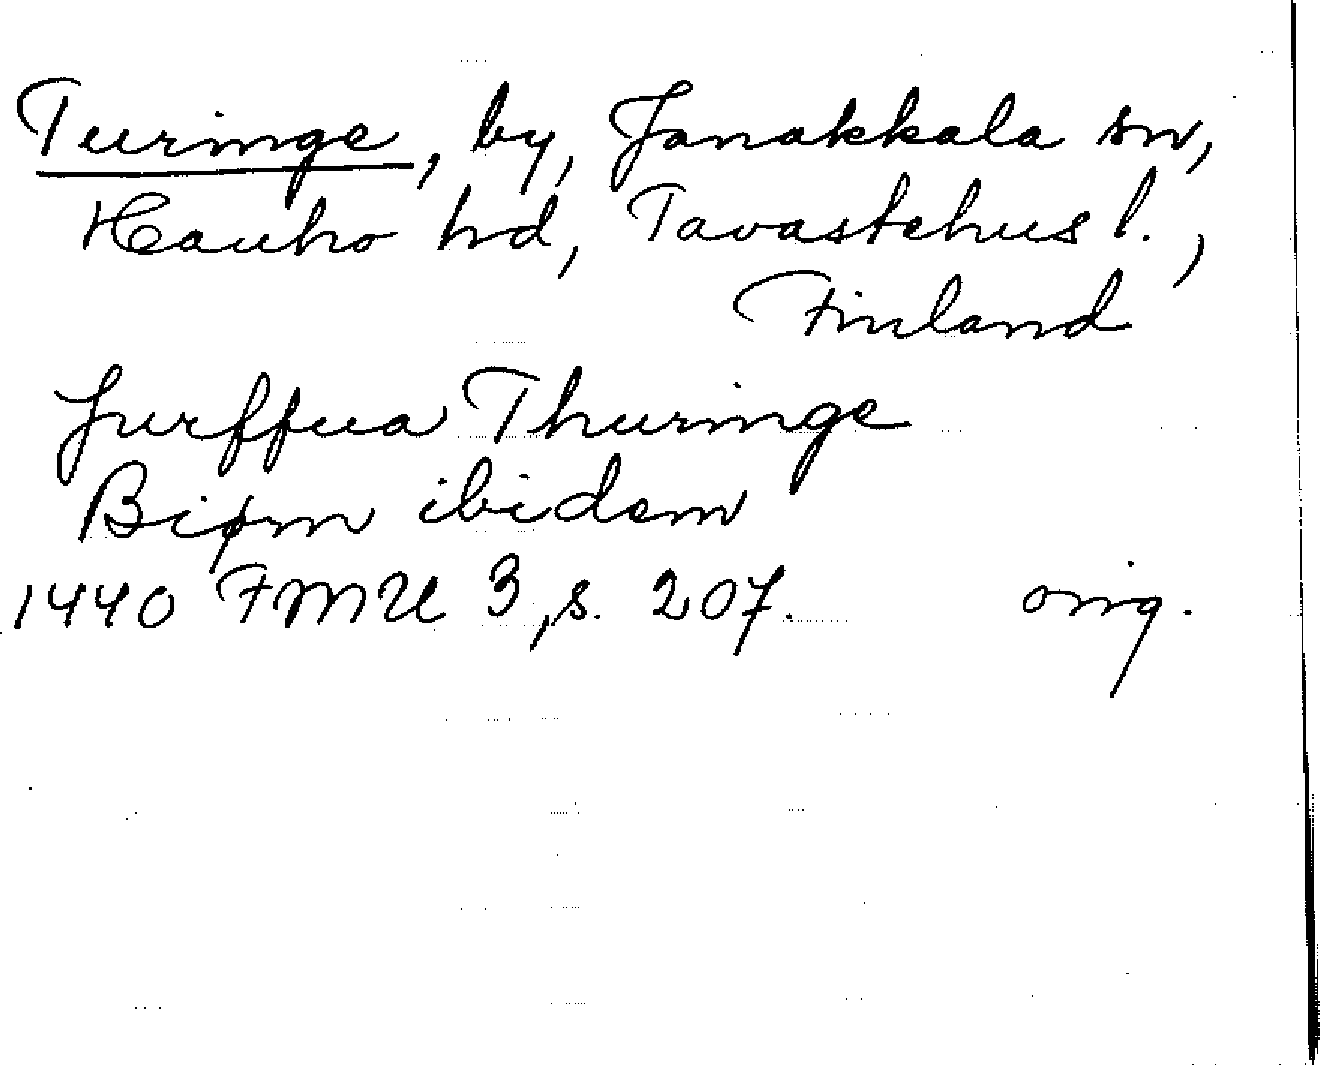 Turinge, by, Janakkala sn,
Hauho hd, Tavastehus l.,
Finland
Jurffua Thuringe
Biørn ibidem
1440 FMU 3, s. 207. orig.